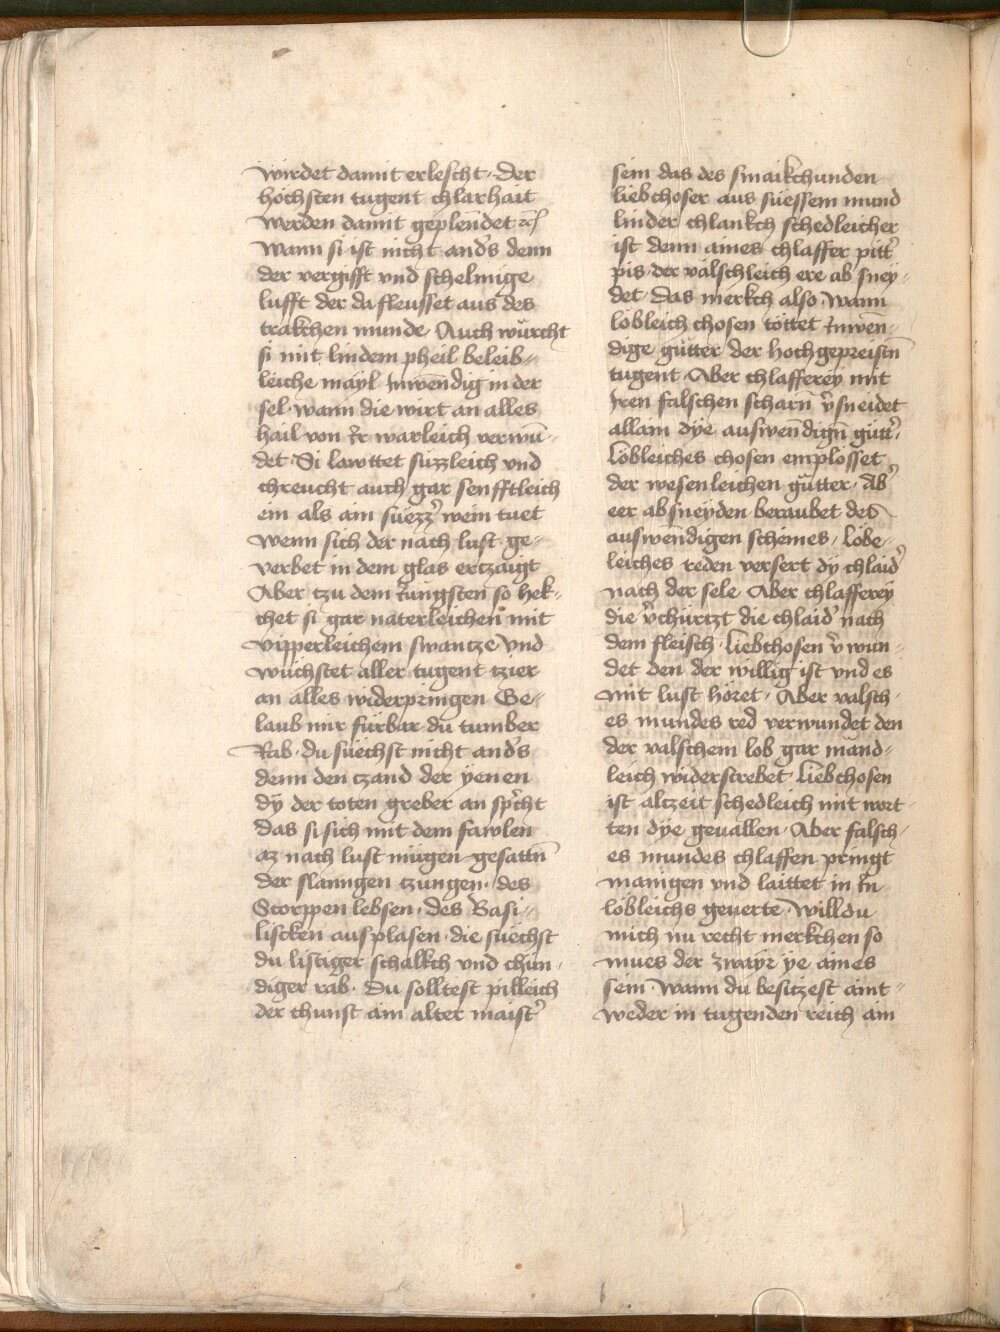 wirdet damit erlescht · Der
höchsten tugent chlarhait
werden damit geplendet ꝛc̃
Wann si ist nicht and̕s denn
der vergifft vnd schelmige
lufft der da fleusset aus des
trakchen munde Auch würcht
si mit lindem pheil beleib〃
leiche mayl Inwendig in der
sel · wann die wirt an alles
hail von Ir̃ warleich verwū〃
det · Si lawttet süzzleich vnd
chreucht auch gar senfftleich
ein als am süezz̕ wein tuet
wenn sich der nach lust ge〃
verbet in dem glas ertzaigt
Aber tzu dem Iüngsten so hek〃
chet si gar naterleichen mit
vipperleichem swantze Vnd
wüchstet aller tugent tzier
an alles widerpringen Ge〃
laub mir fürbar du tumber
Rab · du süechst nicht and̕s
denn den tzand der yenen
dÿ der toten greber an sp̕cht
das si sich mit dem fawlen
az nach lust mügen gesattn̄
der slanngen tzungen · des
Scorppen lebsen · des Basi〃
liscken ausplasen · die süechst
du listiger schalkch vnd chün〃
diger rab · Du solltest pilleich
der chunst ain alter maist̕
sein das des smaikchunden
liebchoser aus süessem mund
linder chlankch schedleicher
ist denn aines chlaffer pitt̕
pis · der välschleich ere ab sney〃
det · Das merkch also · Wann
lobleich chosen töttet Inwen〃
dige gütter der hochgepreistn̄
tugent · Aber chlafferey mit
Iren falschen scharn v̕sneidet
allain dÿe auswendign̄ gütt̕ ·
Löbleiches chosen emplösset
der wesenleichen gütter · Ab̕
eer absneyden beraubet des
auswendigen scheines · Löbe〃
leiches reden versert dÿ chlaid̕
nach der sele Aber chlafferey
die v̕chürtzt die chlaid̕ nach
dem fleisch · Liebchosen v̕wun〃
det den der willig ist vnd es
mit lust höret · Aber valsch〃
es mundes red verwundet den
der valschem lob gar mänd〃
leich widerstrebet · Liebchosen
ist altzeit schedleich mit wort〃
ten dÿe geuallen · Aber falsch〃
es mundes chlaffen pringt
manigen vnd laittet in In
löbleichs geuerte · Willdu
mich nu recht merkchen so
mues der zwayr ye aines
sein · Wann du besitzest aint〃
weder in tugenden reich ain